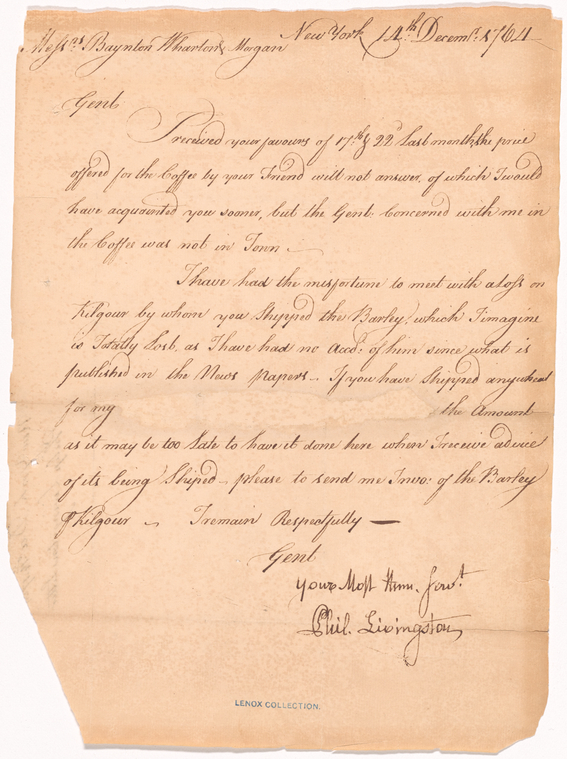 New York 14th Decemr. 1764
Messrs Baynton Wharton & Morgan
Gent
I received your favours of 17th & 22d Last month, the price
offered for the Coffee by your Friend will not answer, of which I would
have acquainted you sooner, but the Gent. Concerned with me in
the Coffee was not in Town
I have had the misfortune to meet with a Loss on
Kilgour by whom you Shipped the Barley, which I imagine
is Totally Lost, as I have had no Acct. of him since what is
published in the News papers - If you have Shipped any wheat
for my the Amount
as it may be too Late to have it done here when I receive advice
of its being Shiped - please to send me Invo: of the Barley
Kilgour I remain Respectfully
Gent
your Most Hum. Servt.
Phil. Livingston
LENOX COLLECTION.